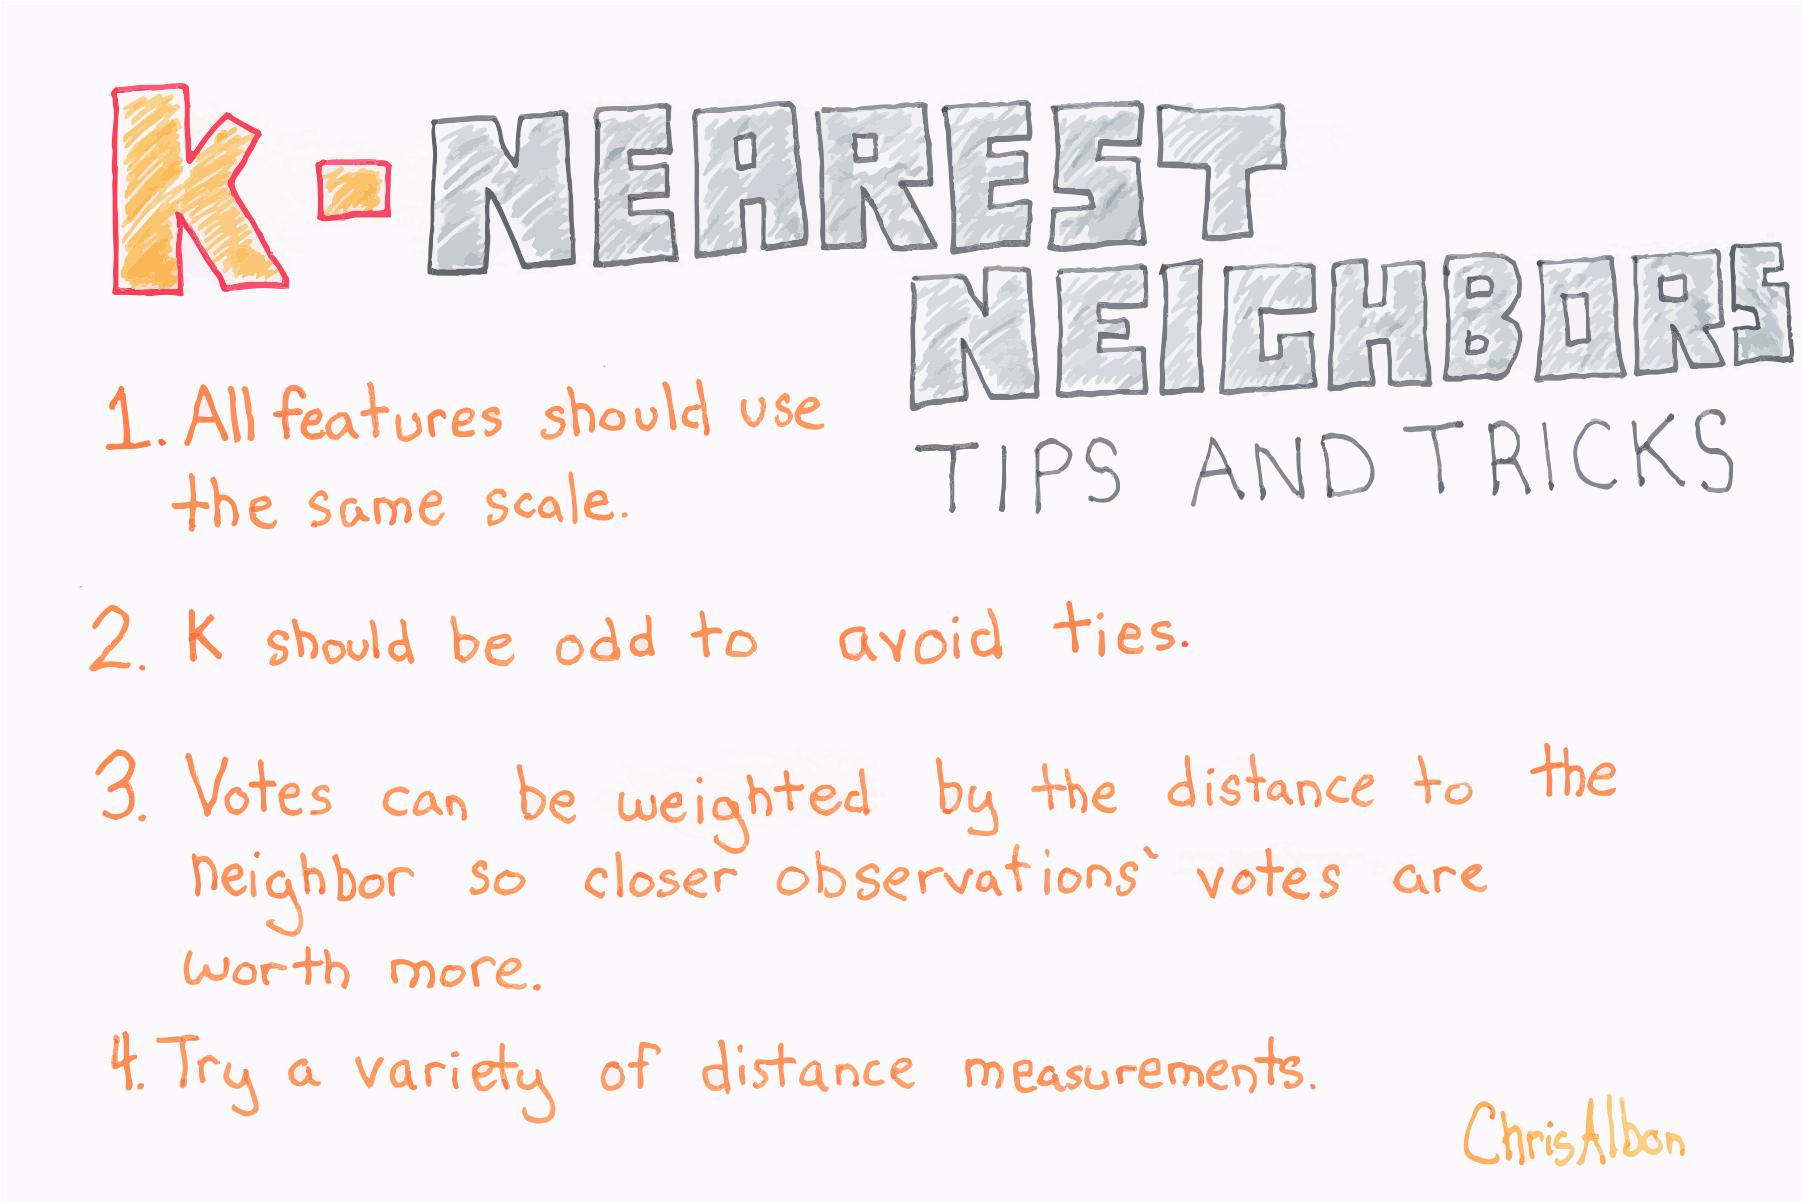 K-NEAREST
NEIGHBORS
TIPS AND TRICKS
1. All features should use
the same scale.
2. K should be odd to avoid ties.
3. Votes can be weighted by the distance to the
neighbor so closer observations` votes are
worth more.
4. Try a variety of distance measurements.
ChrisAlbon